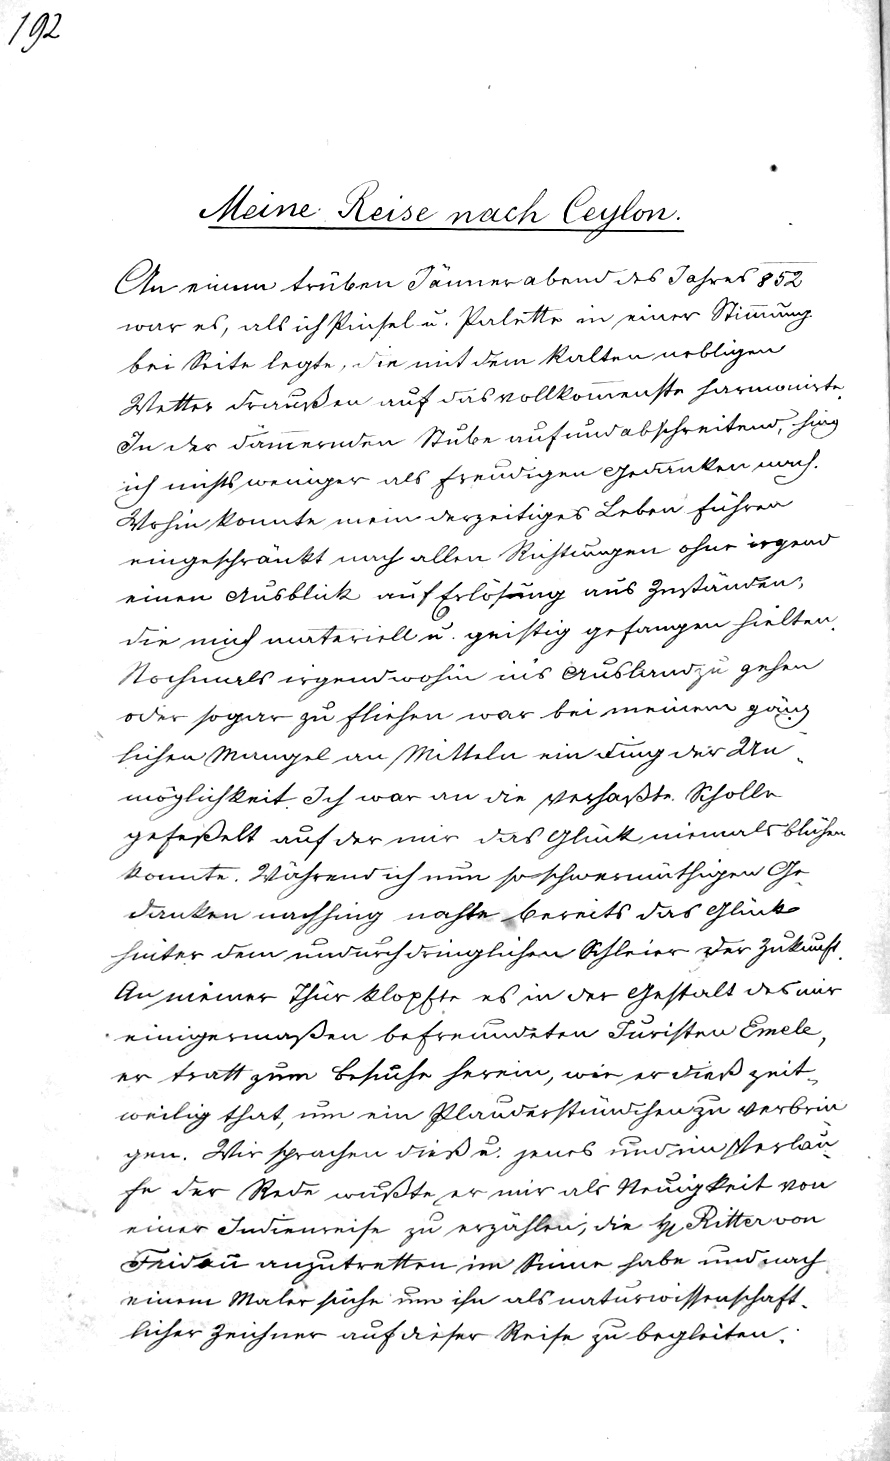 192
Meine Reise nach Ceylon.
An einem trüben Jännerabend des Jahres 852
war es, als ich Pinsel u. Palette in einer Stim̅ung
bei Seite legte, die mit dem kalten nebligen
Wetter draußen auf das vollkom̅enste harmonirte.
In der däm̅ernden Stube auf und abschreitend, hing
ich nichts weniger als freudigen Gedanken nach.
Wohin konnte mein derzeitiges Leben führen
eingeschränkt nach allen Richtungen ohne irgend
einen Ausblick auf Erlösung aus Zuständen,
die mich materiell u. geistig gefangen hielten.
Nochmals irgendwohin in's Ausland zu gehen
oder sogar zu fliehen war bei meinem gänz
lichen Mangel an Mitteln ein Ding der Un-
möglichkeit. Ich war an die verhaßte Scholle
gefeßelt auf der mir das Glück niemals blühen
konnte. Während ich nun so schwermüthigen Ge-
danken nachhing nahte bereits das Glück
hinter dem undurchdringlichen Schleier der Zukunft.
An meiner Thür klopfte es in der Gestalt des mir
einigermaßen befreundeten Juristen Emele,
er tratt zum Besuche herein, wie er dieß zeit-
weilig that, um ein Plauderstündchen zu verbrin
gen. Wir sprachen dieß u. jenes und im Verlau-
fe der Rede wußte er mir als Neuigkeit von
einer Indienreise zu erzählen, die H Ritter von
Fridau anzutretten im Sinne habe und nach
einem Maler suche um ihn als naturwissenschaft-
licher Zeichner auf dieser Reise zu begleiten.